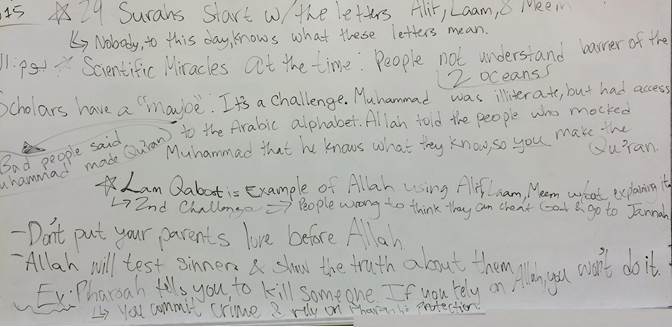 15 ☆ 29 Surahs Start w/the letters Alif, Laam, & Meem
↳ Nobody, to this day, knows what these letters mean.
☆ Scientific Miracles at the time: People not understand barrier of the
2 oceans
Scholars have a "maybe". It's a challenge. Muhammad was illiterate, but had access
Bad people said Muhammad made Qu'ran
to the Arabic alphabet. Allah told the people who mocked
Muhammad that he knows what they know, so you make the
Qu'ran.
☆ Lam is Example of Allah using Alif, Laam, Meem w/out explaining it
↳ 2nd Challenge → People wrong to think they can cheat God & go to Jannah
- Don't put your parents love before Allah.
- Allah will test sinners & show the truth about them
Ex: Pharoah tells you, to kill someone. If you rely on Allah, you won't do it.
↳ You commit crime & rely on Pharaoh's protection.